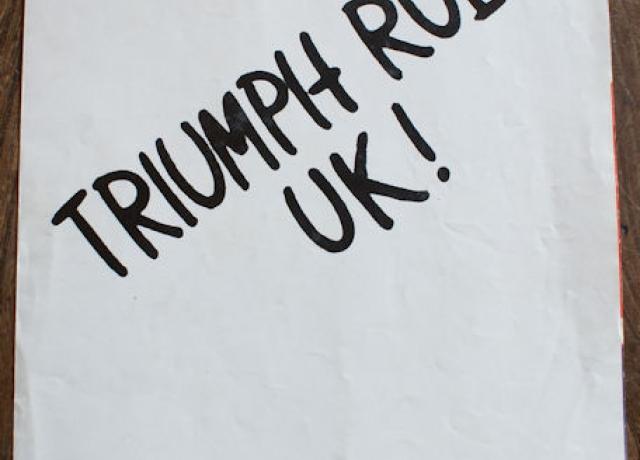 TRIUMPH
UK!